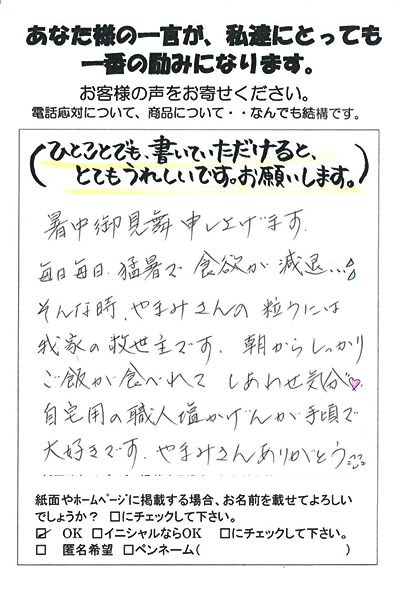 あなた様の一言が、私達にとっても
一番の励みになります。
お客様の声をお寄せください。
電話応対について、商品について・・なんでも結構です。
(ひとことでも、書いていただけると、
とてもうれしいです。お願いします。)
暑中御見舞申し上げます.
毎日毎日.猛暑で食欲が減退...
そんな時、やまみさんの粒うには
我家の救世主です.朝からしっかり
ご飯が食べれてしあわせ気分
自宅用の職人塩かげんが手頃で
大好きです.やまみさんありがとう
紙面やホームページに掲載する場合、お名前を載せてよろしい
でしょうか? □にチェックして下さい。
☑ OK □イニシャルならOK □にチェックして下さい。
□ 匿名希望 □ペンネーム( )